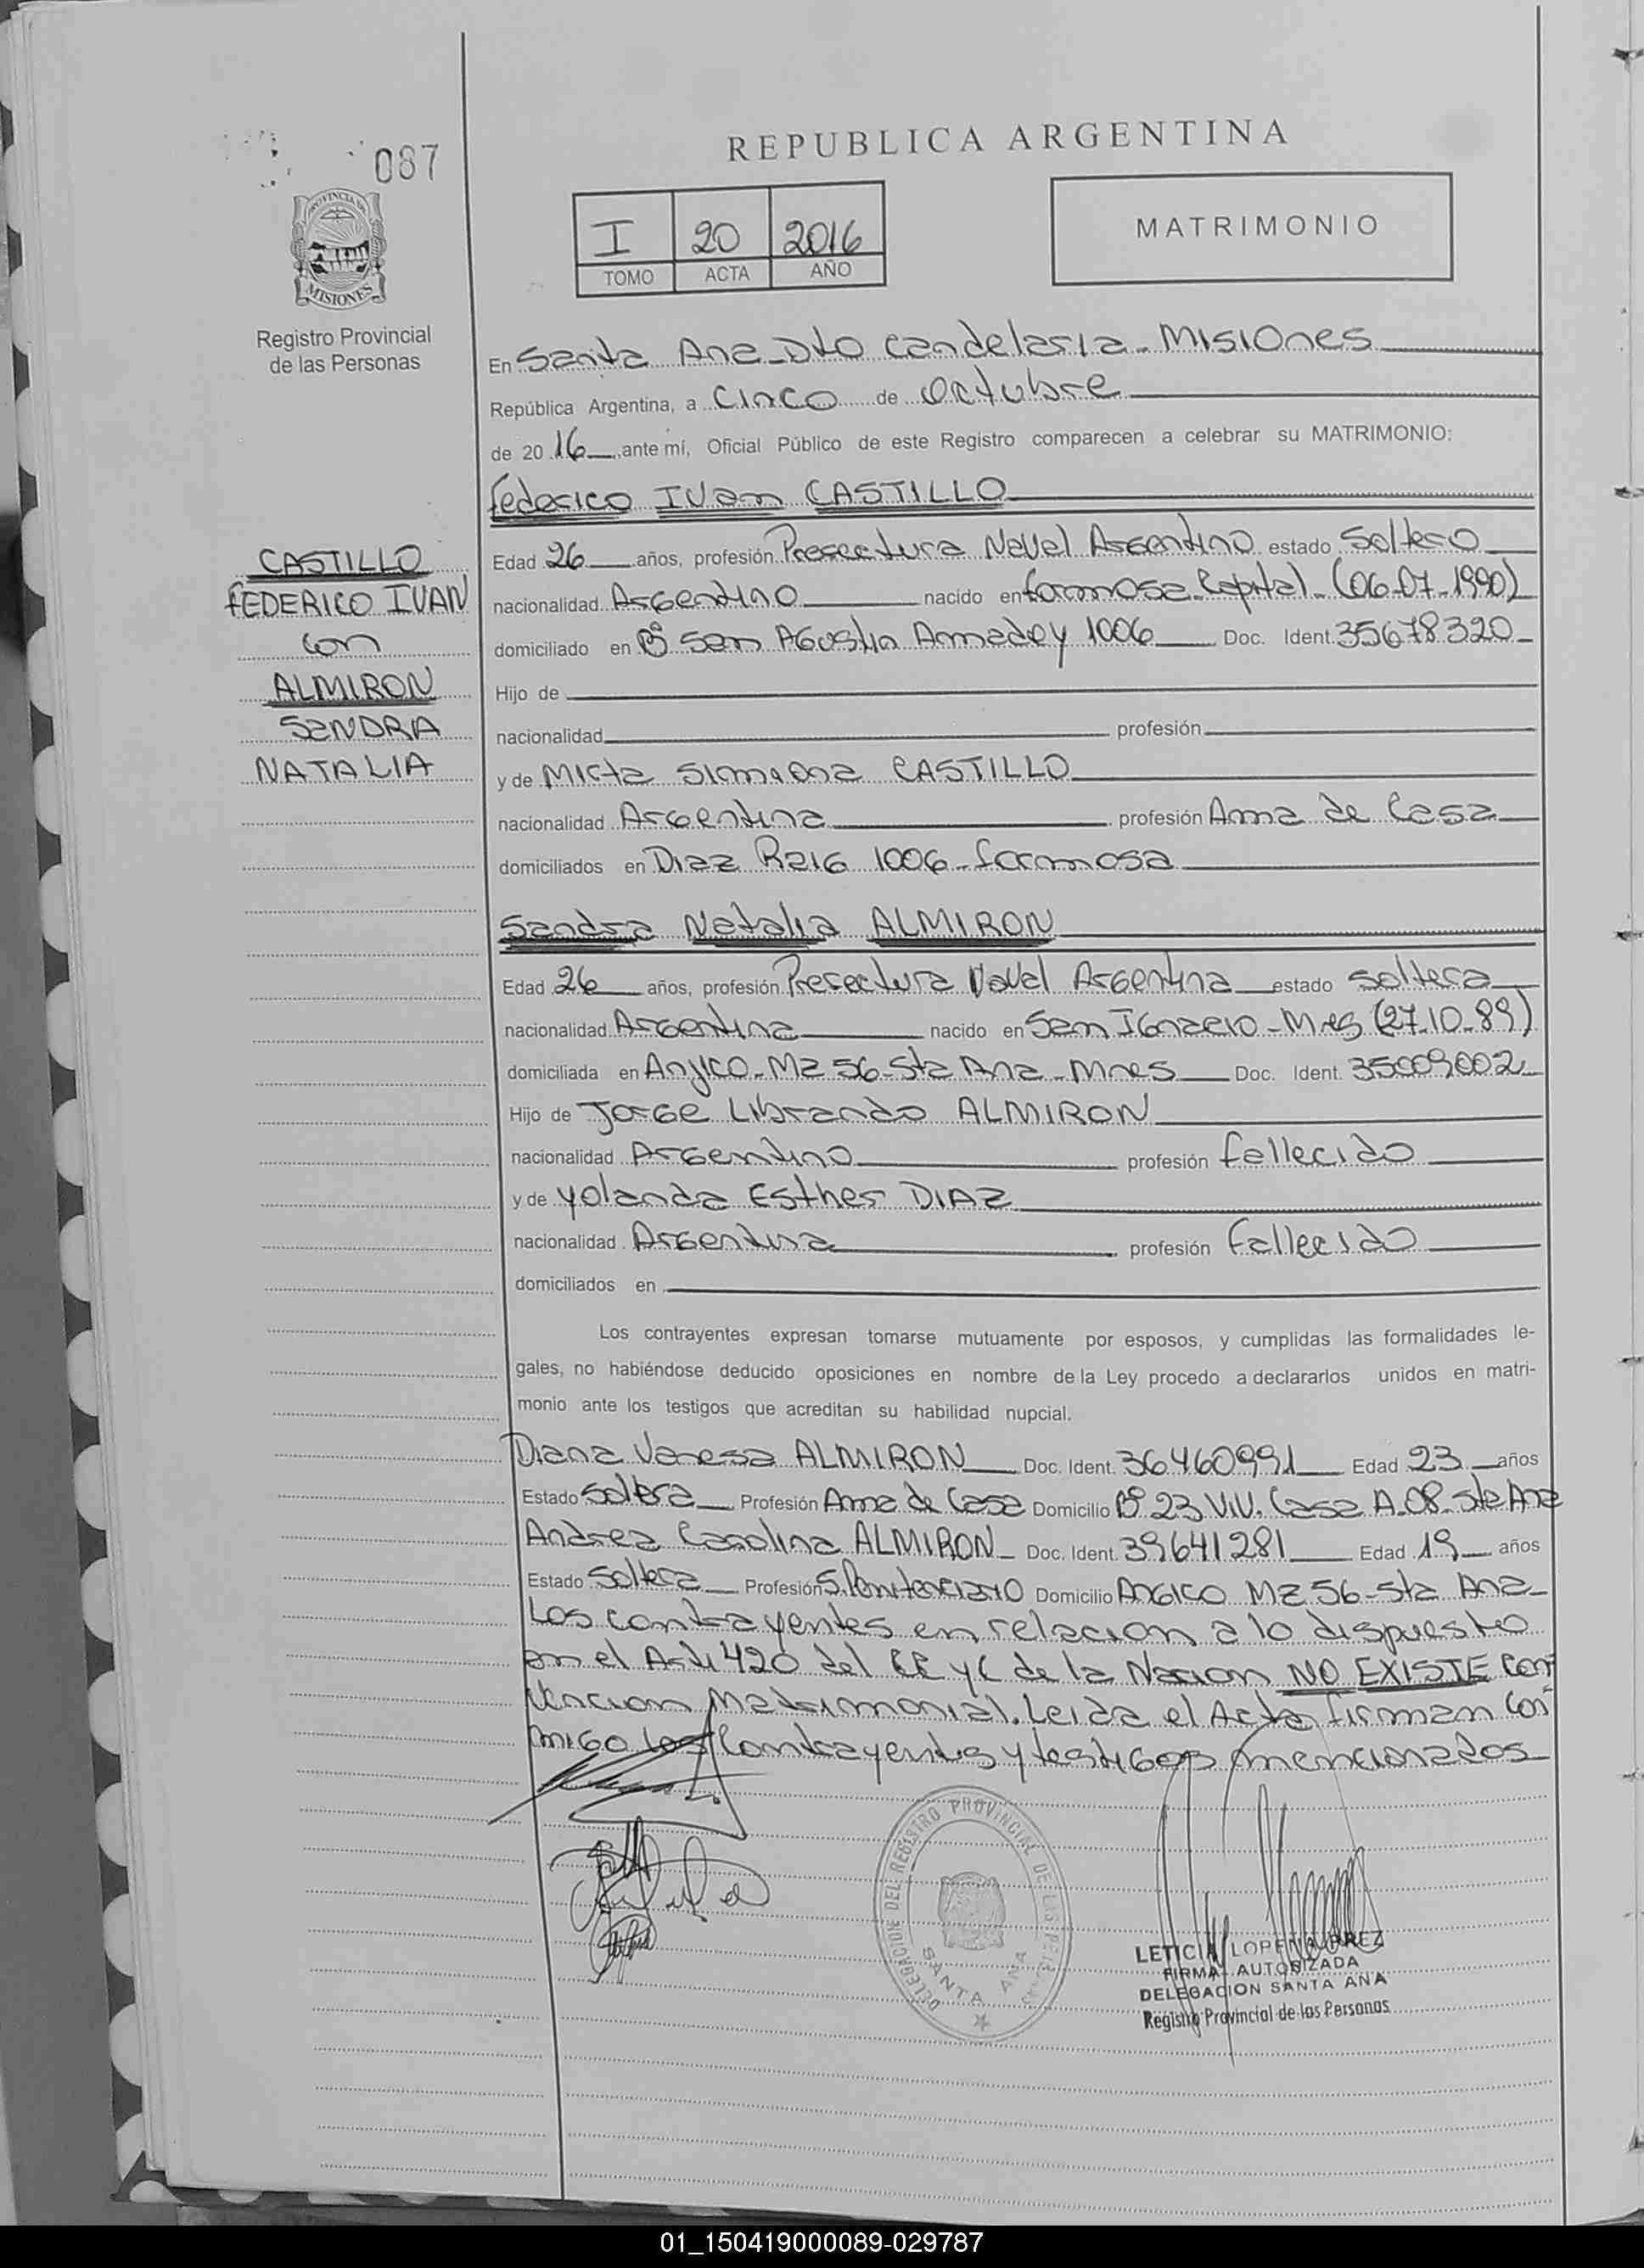 087
REPUBLICA ARGENTINA
PROVINCIA DE
MISIONES
I 20 2016
TOMO ACTA AÑO
MATRIMONIO
Registro Provincial
de las Personas
En Santa Ana - Dto Candelaria - Misiones
República Argentina, a Cinco de Octubre
de 20 16 ante mí, Oficial Público de este Registro comparecen a celebrar su MATRIMONIO:
Federico Ivan CASTILLO
CASTILLO
FEDERICO IVAN
con
ALMIRON
SANDRA
NATALIA
Edad 26 años, profesión Prefectura Naval Argentino estado Soltero
nacionalidad Argentino nacido en Formosa Capital - (06-07-1990)
domiciliado en Bº San Agustin Amadey 1006 Doc. Ident. 35678320
Hijo de
nacionalidad profesión
y de Mirta CASTILLO
nacionalidad Argentina profesión Ama de Casa
domiciliados en Diaz Roig 1006 - Formosa
Sandra Natalia ALMIRON
Edad 26 años, profesión Prefectura Naval Argentina estado Soltera
nacionalidad Argentina nacido en San Ignacio - Mnes (27-10-89)
domiciliada en Angico - Mz 56 - Sta Ana - Mnes Doc. Ident. 35009002
Hijo de Jorge Librando ALMIRON
nacionalidad Argentino profesión Fallecido
y de Yolanda Esther DIAZ
nacionalidad Argentina profesión Fallecido
domiciliados en
Los contrayentes expresan tomarse mutuamente por esposos, y cumplidas las formalidades le-
gales, no habiéndose deducido oposiciones en nombre de la Ley procedo a declararlos unidos en matri-
monio ante los testigos que acreditan su habilidad nupcial.
Diana Vanesa ALMIRON Doc. Ident. 36460991 Edad 23 años
Estado Soltera Profesión Ama de Casa Domicilio Bº 23 Viv. Casa A-08 - Sta Ana
Andrea Carolina ALMIRON Doc. Ident. 39641281 Edad 19 años
Estado Soltera Profesión S. Penitenciario Domicilio Angico Mz 56 - Sta Ana
Los contrayentes en relacion a lo dispuesto
en el Arti 420 del CC y C de la Nacion NO EXISTE Con
vencion Matrimonial. Leida el Acta firman con
migo los Contrayentes y testigos mencionados
DELEGACION DEL REGISTRO PROVINCIAL DE LAS PERSONAS
SANTA ANA
LETICIA
FIRMA AUTORIZADA
DELEGACION SANTA ANA
Registro Provincial de las Personas
01_150419000089-029787